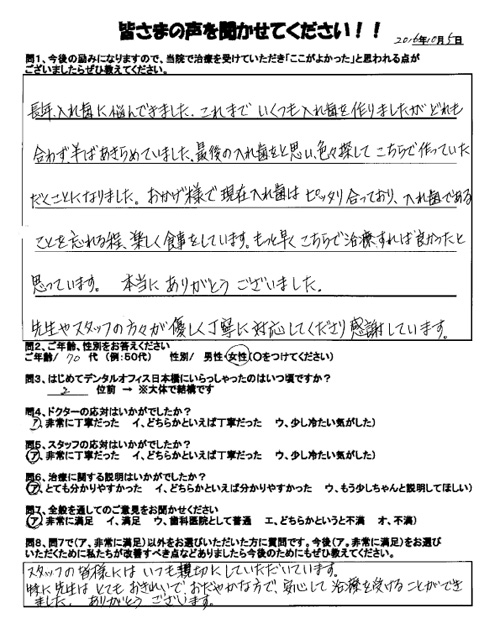 皆さまの声を聞かせてください！！
2016年10月5日
問1、今後の励みになりますので、当院で治療を受けていただき「ここがよかった」と思われる点が
ございましたらぜひ教えてください。
長年、入れ歯に悩んできました。これまでいくつも入れ歯を作りましたがどれも
合わず、半ばあきらめていました、最後の入れ歯をと思い、色々探してこちらで作っていた
だくことになりました。おかげ様で現在入れ歯はピッタリ合っており、入れ歯である
ことを忘れる程、楽しく食事をしています。もっと早くこちらで治療すれば良かったと
思っています。 本当にありがとうございました。
先生やスタッフの方々が優しく丁寧に対応してくださり感謝しています。
問2、ご年齢、性別をお答えください
ご年齢/ 70 代 (例:50代) 性別/ 男性・女性(○をつけてください)
問3、はじめてデンタルオフィス日本橋にいらっしゃったのはいつ頃ですか?
2 位前 → ※大体で結構です
問4、ドクターの応対はいかがでしたか?
ア、非常に丁寧だった イ、どちらかといえば丁寧だった ウ、少し冷たい気がした)
問5、スタッフの応対はいかがでしたか?
(ア、非常に丁寧だった イ、どちらかといえば丁寧だった ウ、少し冷たい気がした)
問6、治療に関する説明はいかがでしたか?
(ア、とても分かりやすかった イ、どちらかといえば分かりやすかった ウ、もう少しちゃんと説明してほしい)
問7、全般を通してのご意見をお聞かせください
(ア、非常に満足 イ、満足 ウ、歯科医院として普通 エ、どちらかというと不満 オ、不満)
問8、問7で(ア、非常に満足)以外をお選びいただいた方に質問です。今後(ア。非常に満足)をお選び
いただくために私たちが改善すべき点などありましたら今後のためにもぜひ教えてください。
スタッフの皆様にはいつも親切にしていただいています。
特に先生はとてもおきれいで、おだやかな方で、安心して治療を受けることができ
ました。 ありがとうございます。